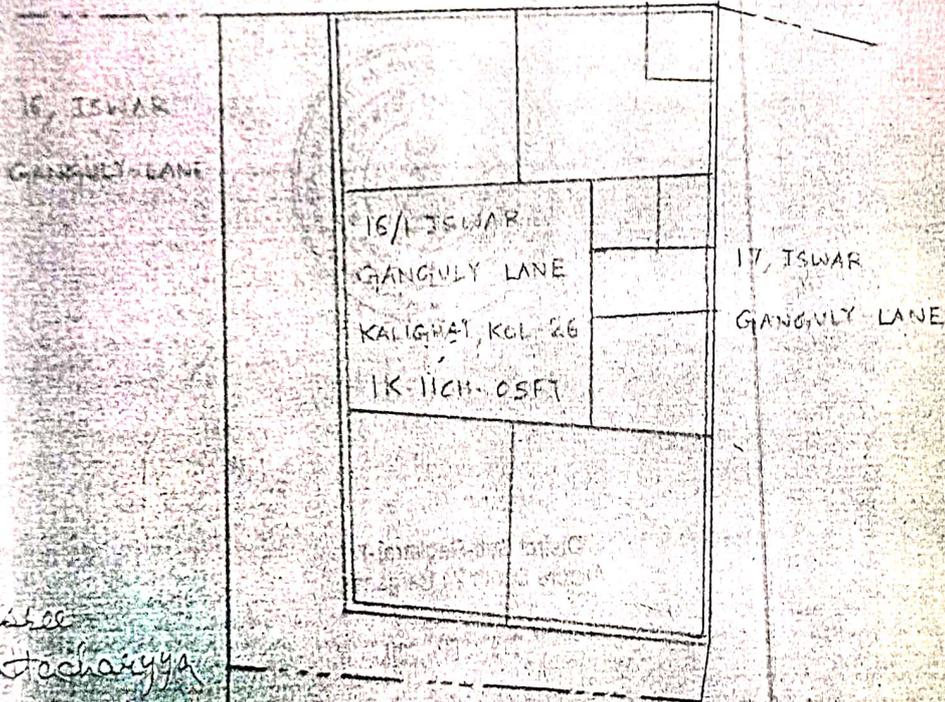 16, ISWAR
GANGULY LANE
16/1 ISWAR
GANGULY LANE
KALIGHAT, KOL-26
1K-11CH-0SFT
17, ISWAR
GANGULY LANE